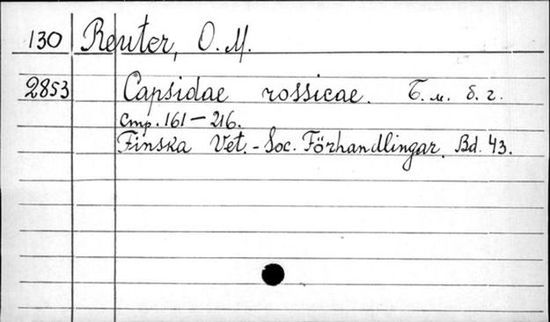 130 Reuter, O. M.
2853 Capsidae rossicae. Б. м. б. г.
Стр. 161 – 216.
Finska Vet.-Soc. Förhandlingar. Bd. 43.